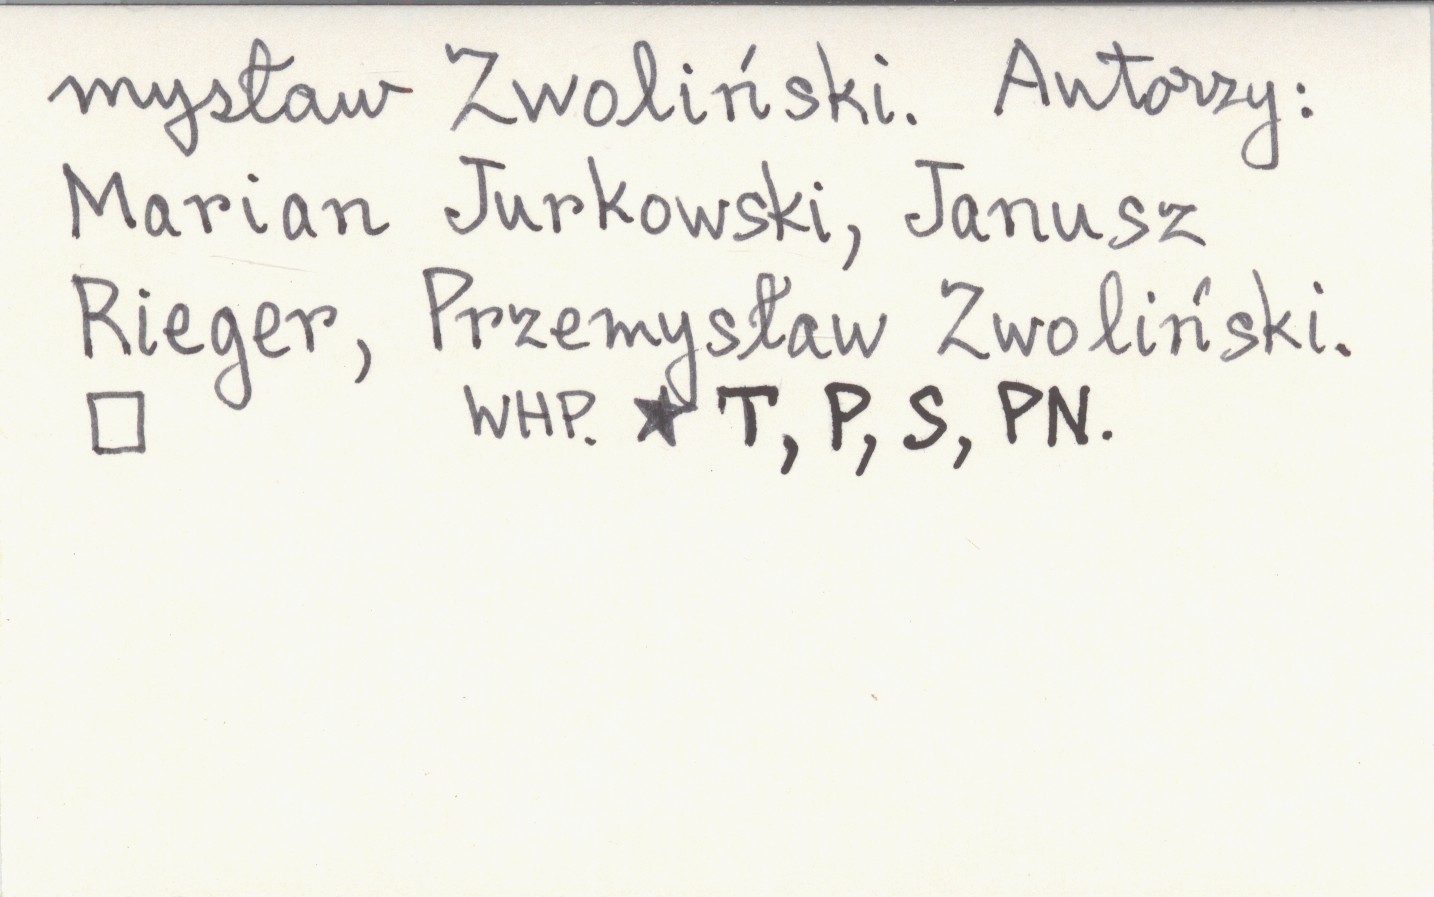 mysław Zwoliński. Autorzy:
Marian Jurkowski, Janusz
Rieger, Przemysław Zwoliński.
□ WHP. ★ T, P, S, PN.